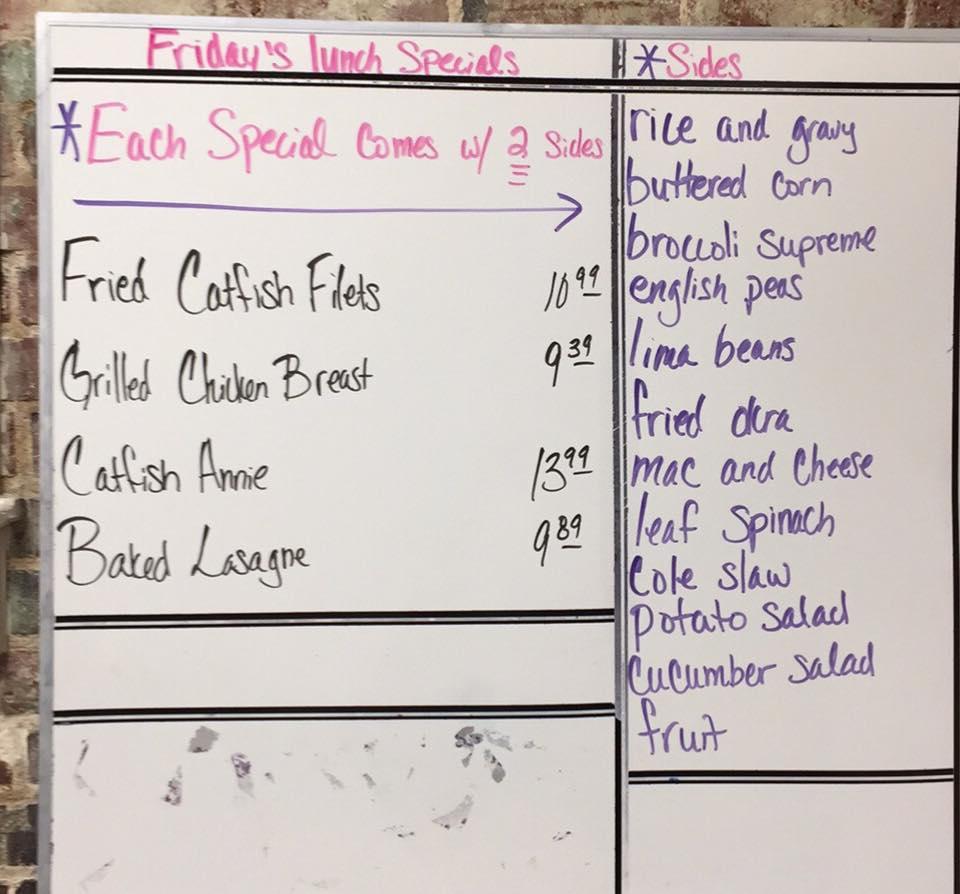 Friday's lunch Specials
*Each Special Comes w/ 2 Sides
Fried Catfish Filets 10.99
Grilled Chicken Breast 9.39
Catfish Annie 13.99
Baked Lasagne 9.89
*Sides
rice and gravy
buttered corn
broccoli Supreme
english peas
lima beans
fried okra
mac and Cheese
leaf Spinach
Cole slaw
potato Salad
Cucumber Salad
fruit